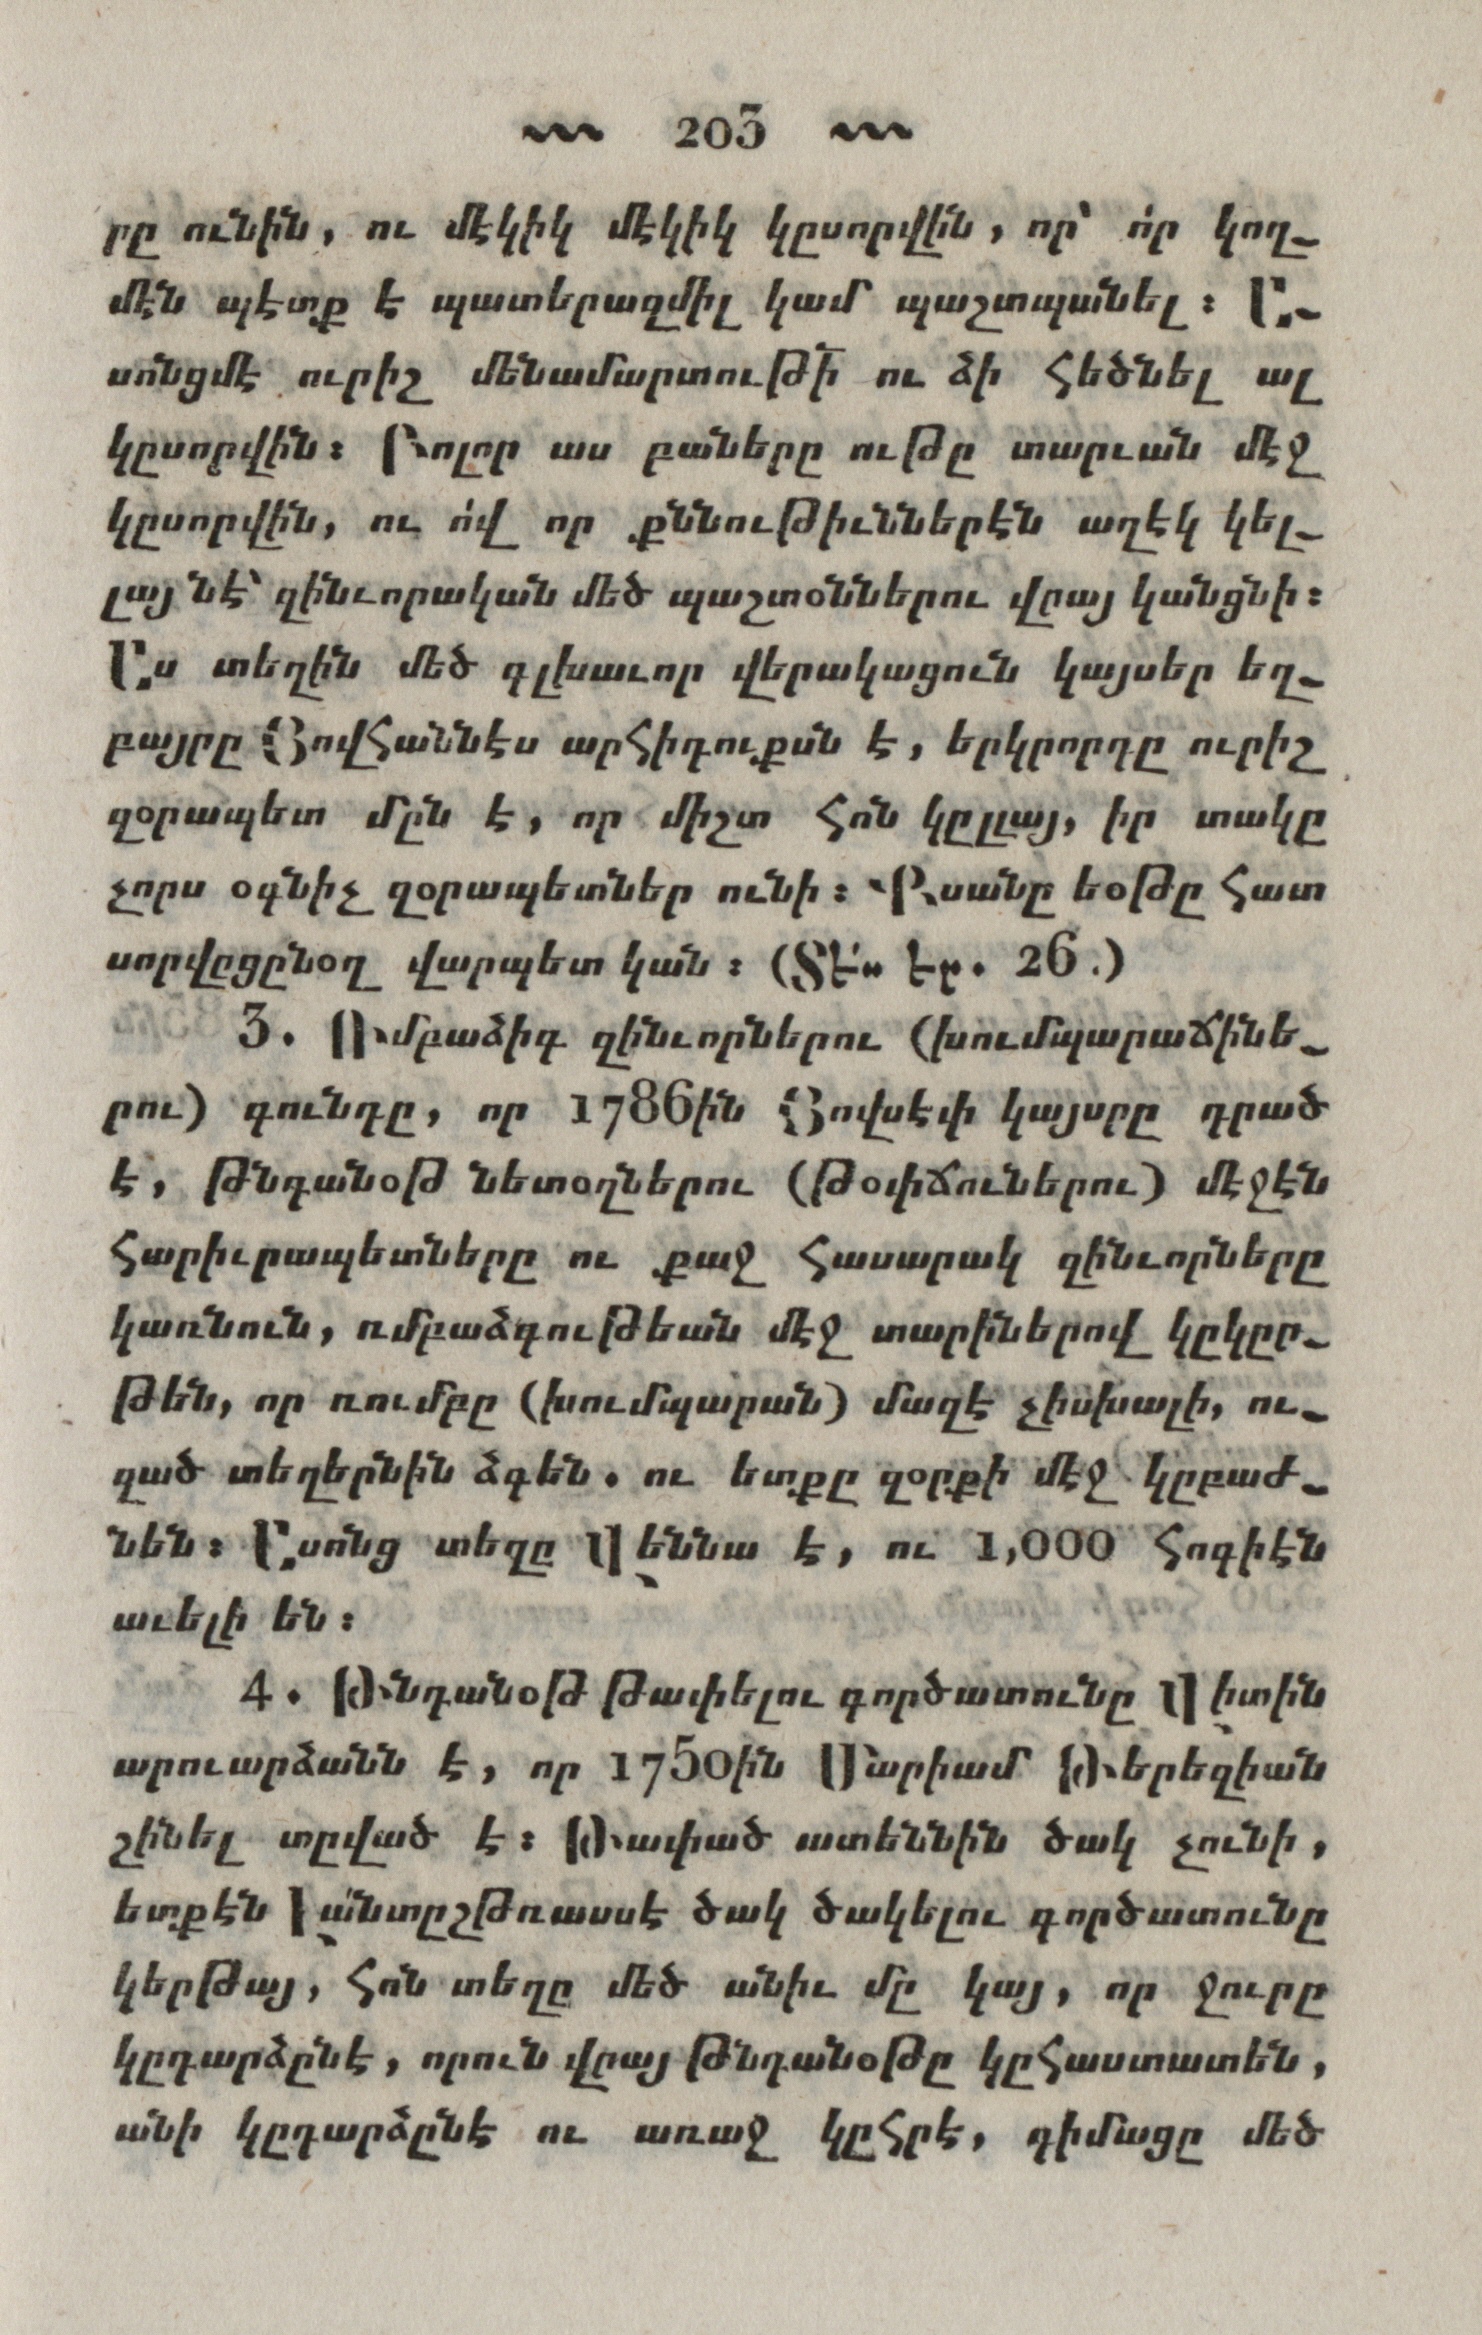 203
րը ունին, ու մէկիկ մէկիկ կըսորվին, որ՝ ո՛ր կող֊
մէն պէտք է պատերազմիլ կամ պաշտպանել։ Ը֊
սոնցմէ ուրիշ մենամարտութի՟ ու ձի հեծնել ալ
կըսորվին։ Բոլոր աս բաները ութը տարւան մէջ
կըսորվին, ու ո՛վ որ քննութիւններէն աղէկ կել֊
լայ նէ՝ զինւորական մեծ պաշտօններու վրայ կանցնի։
Աս տեղին մեծ գլխաւոր վերակացուն կայսեր եղ֊
բայրը Յովհաննէս արհիդուքսն է, երկրորդը ուրիշ
զօրապետ մըն է, որ միշտ հոն կըլլայ, իր տակը
չորս օգնիչ զօրապետներ ունի։ Քսանը եօթը հատ
սորվըցընօղ վարպետ կան։ (Տե՛ս եր. 26.)
3. Ռմբաձիգ զինւորներու (խումպարաճինե֊
րու) գունդը, որ 1786ին Յովսէփ կայսրը դրած
է, թնդանօթ նետօղներու (թօփճուներու) մէջէն
հարիւրապետները ու քաջ հասարակ զինւորները
կառնուն, ռմբաձգութեան մէջ տարիներով կըկըր֊
թեն, որ ռումբը (խումպարան) մազէ չիսխալի, ու֊
զած տեղերնին ձգեն. ու ետքը զօրքի մէջ կըբաժ֊
նեն։ Ասոնց տեղը Վեննա է, ու 1,000 հոգիէն
աւելի են։
4. Թնդանօթ թափելու գործատունը Վիտին
արուարձանն է, որ 1750ին Մարիամ Թերեզիան
շինել տըված է։ Թափած ատեննին ծակ չունի,
ետքէն Լանտըշթռասսէ ծակ ծակելու գործատունը
կերթայ, հոն տեղը մեծ անիւ մը կայ, որ ջուրը
կըդարձընէ, որուն վրայ թնդանօթը կըհաստատեն,
անի կըդարձընէ ու առաջ կըհրէ, դիմացը մեծ